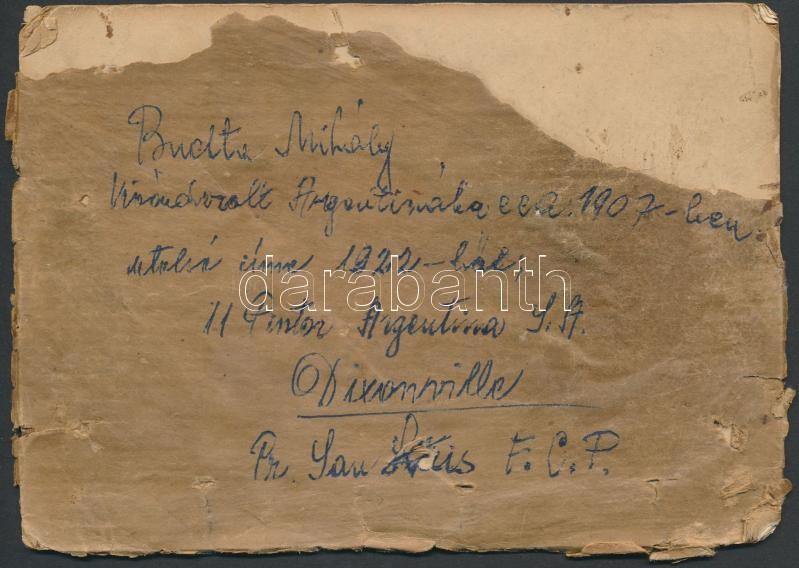 Budta Mihály
Kivándorolt Argentinába cca. 1907-ben
utolsó címe 1922-ből,
darabanth
11 Pintor Argentina S. A.
Dixonville
Pr. San Luis F. C. P.